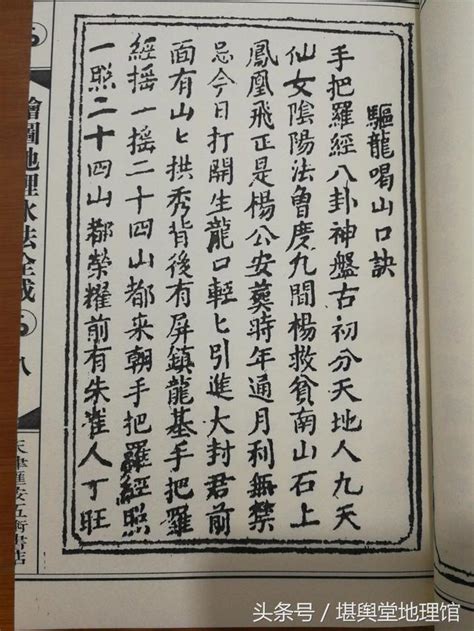 驅龍喝山口訣
手把羅經八卦神盤古初分天地人九天
仙女陰陽法曾度九間楊救貧南山石上
鳳凰飛正是楊公安葬時年通月利無禁
忌今日打開生龍口輕匕引進大封君前
面有山匕拱秀背後有屏鎮龍基手把羅
經摇一摇二十四山都来朝手把羅經照
一照二十四山都榮耀前有朱雀人丁旺
繪圖地理水法全成
八
天津 五街書店
头条号 / 堪舆堂地理馆